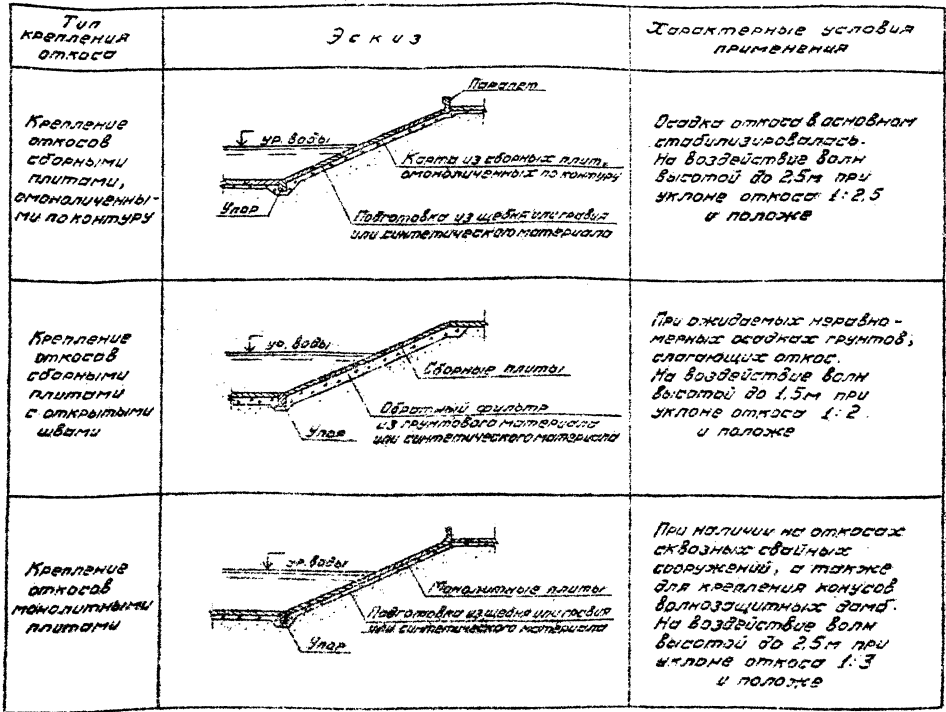 Тип
крепления
откоса
Эскиз
Характерные условия
применения
Крепление
откосов
сборными
плитами,
омоноличенны-
ми по контуру
Парапет
ур. воды
Карта из сборных плит,
омоноличенных по контуру
Упор
Подготовка из щебня или гравия
или синтетического материала
Осадка откоса в основном
стабилизировалась.
На воздействие волн
высотой до 2,5м при
уклоне откоса 1:2,5
и положе
Крепление
откосов
сборными
плитами
с открытыми
швами
ур. воды
Сборные плиты
Обратный фильтр
из грунтового материала
или синтетического материала
Упор
При ожидаемых неравно-
мерных осадках грунтов,
слагающих откос.
На воздействие волн
высотой до 1,5м при
уклоне откоса 1:2
и положе
Крепление
откосов
монолитными
плитами
ур. воды
Монолитные плиты
Подготовка из щебня или гравия
или синтетического материала
Упор
При наличии на откосах
сквозных свайных
сооружений, а также
для крепления конусов
волнозащитных дамб.
На воздействие волн
высотой до 2,5м при
уклоне откоса 1:3
и положе